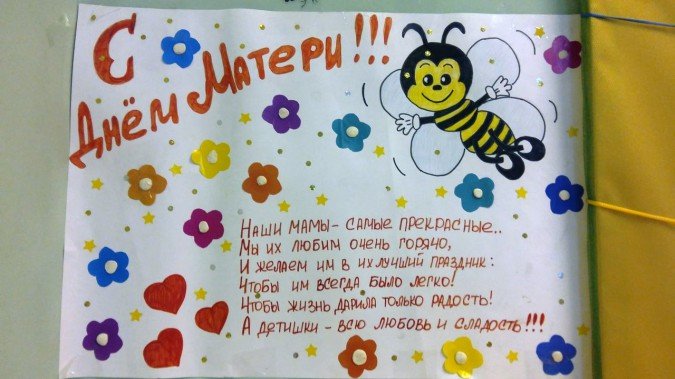 С
Днём Матери!!!
Наши мамы - самые прекрасные..
Мы их любим очень горячо,
И желаем им в их лучший праздник:
Чтобы им всегда было легко!
Чтобы жизнь дарила только радость!
А детишки - всю любовь и сладость!!!